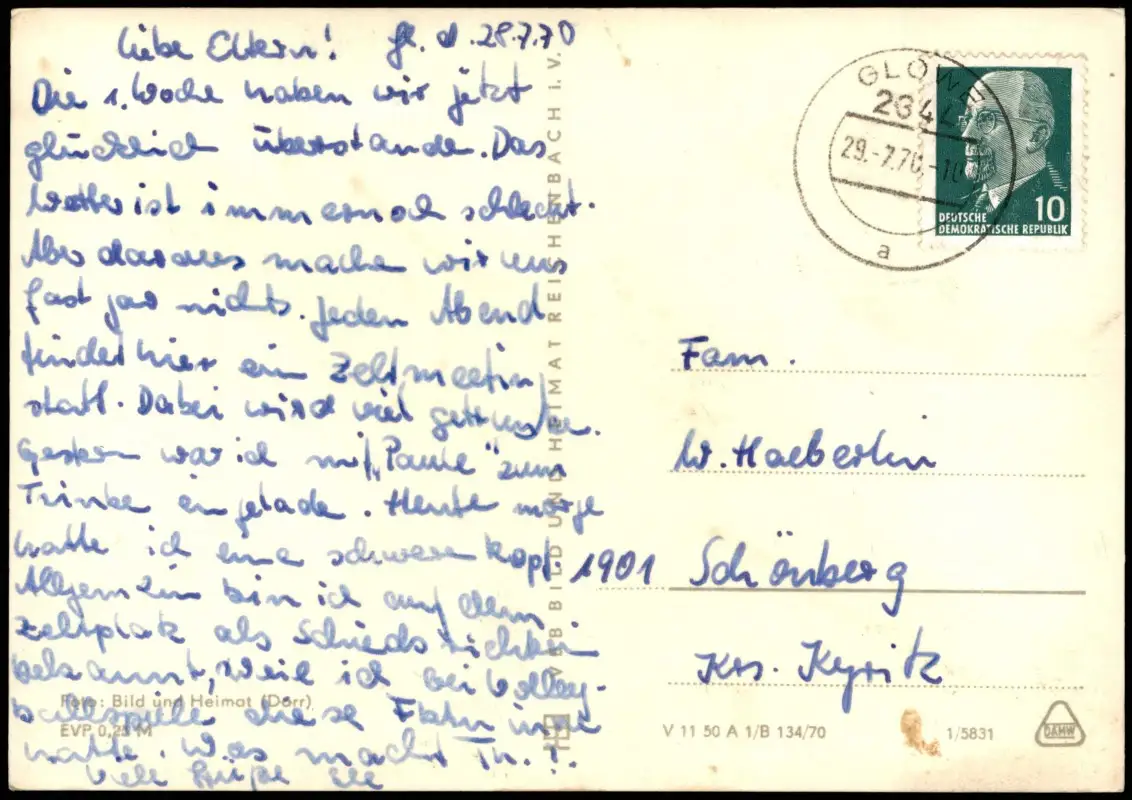 Liebe Eltern! Gl. d. 28.7.70
Die 1. Woche haben wir jetzt
glücklich überstanden. Das
Wetter ist immernoch schlecht.
Aber daraus machen wir uns
fast gar nichts. Jeden Abend
findet hier ein Zeltmeeting
statt. Dabei wird viel getrunken.
Gestern war ich mit „Paule“ zum
Trinken eingeladen. Heute morgen
hatte ich einen schweren Kopf.
Allgemein bin ich auf dem
Zeltplatz als Schiedsrichter
bekannt, weil ich bei Volley-
ballspielen diese
hatte. Was macht Th.?
Viele Grüße
GLOWE
2344
29.-7.70.-10
a
10
DEUTSCHE
DEMOKRATISCHE REPUBLIK
Fam.
W. Haeberlin
1901 Schönberg
Krs. Kyritz
VEB BILD UND HEIMAT REICHENBACH i. V.
Foto: Bild und Heimat (Dörr)
EVP 0,25 M
V 11 50 A 1/B 134/70
1/5831
DAMW